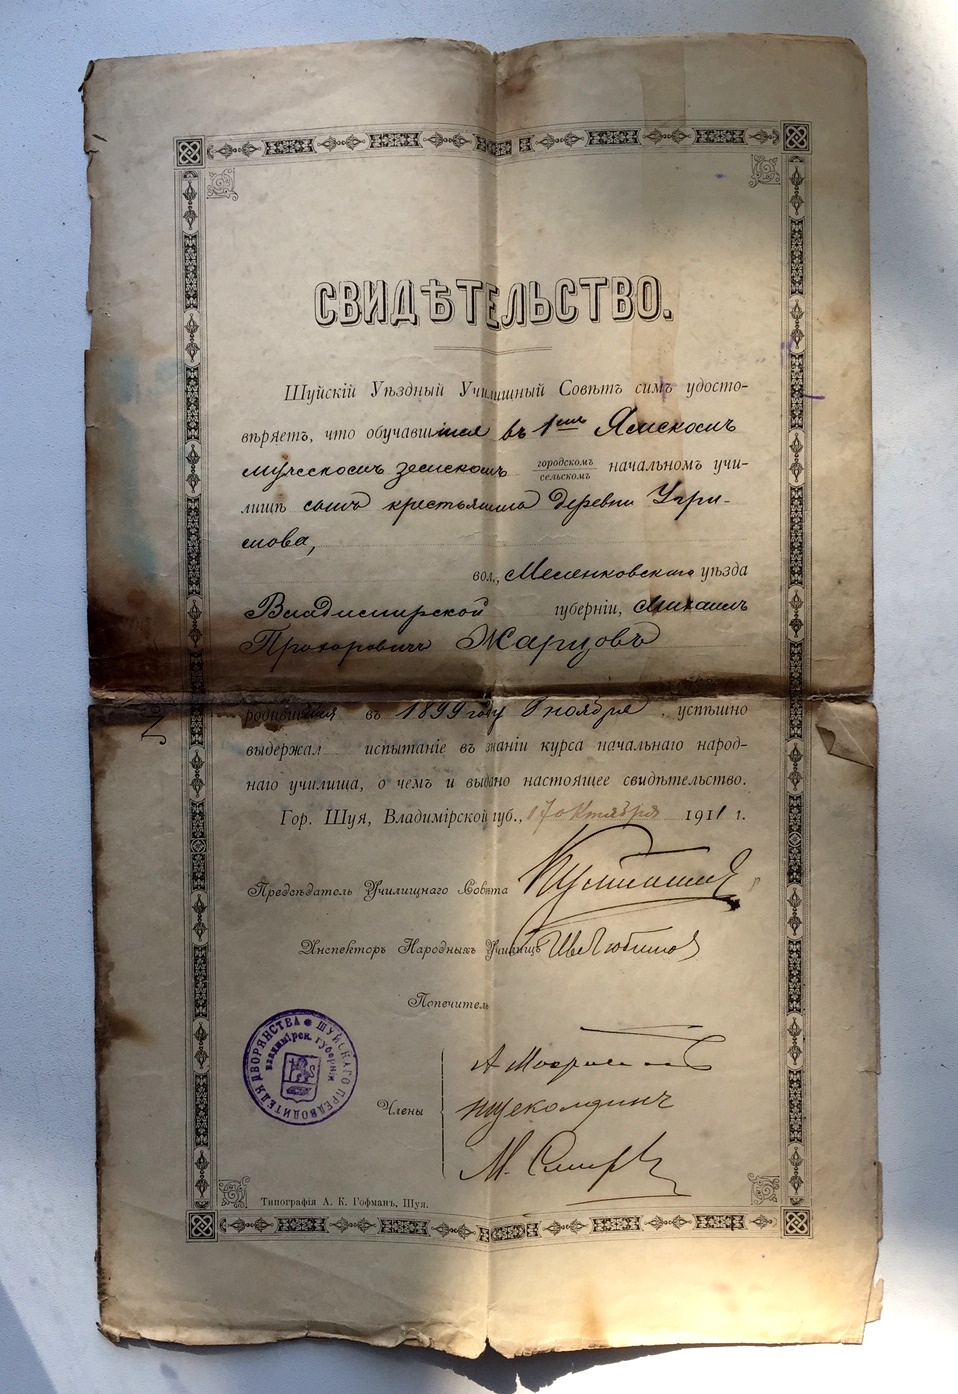 СВИДѢТЕЛЬСТВО.
Шуйскій Уѣздный Училищный Совѣтъ симъ удосто-
вѣряетъ, что обучавшійся въ 1мъ Ямскомъ
мужскомъ земскомъ городскомъ сельскомъ начальномъ учи-
лищѣ сынъ крестьянина деревни
вол., Меленковскаго уѣзда
Владимирской губерніи, Михаилъ
Прохоровичъ Жарцовъ
родившійся въ 1899 году ноября, успѣшно
выдержал испытаніе въ знаніи курса начальнаго народ-
наго училища, о чемъ и выдано настоящее свидѣтельство.
Гор. Шуя, Владимірской губ., 17 октября 1911 г.
Предсѣдатель Училищнаго Совѣта
Инспекторъ Народныхъ Училищъ
Попечитель
Члены
М. Смир
ШУЙСКАГО ПРЕДВОДИТЕЛЯ ДВОРЯНСТВА
Владимірск. губерніи
Типографія А. К. Гофманъ, Шуя.